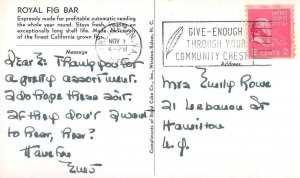 ROYAL FIG BAR
Expressly made for profitable automatic vending
the whole year round. Stays fresh
exceptionally long shelf life. Made
of the finest California grown figs.
VA.
NOV 1
4-PM
GIVE-ENOUGH
THROUGH YOUR
COMMUNITY CHEST
Message
Address
Compliments of Food Cake Co., Inc., Winston-Salem, N.C.
Dear E: Thank you for
a pretty assortment.
I do hope these suit.
If they don't, want
to hear, hear?
Have fun
Mrs Emily Rowe
21 Lebanon St
Hamilton
N.Y.